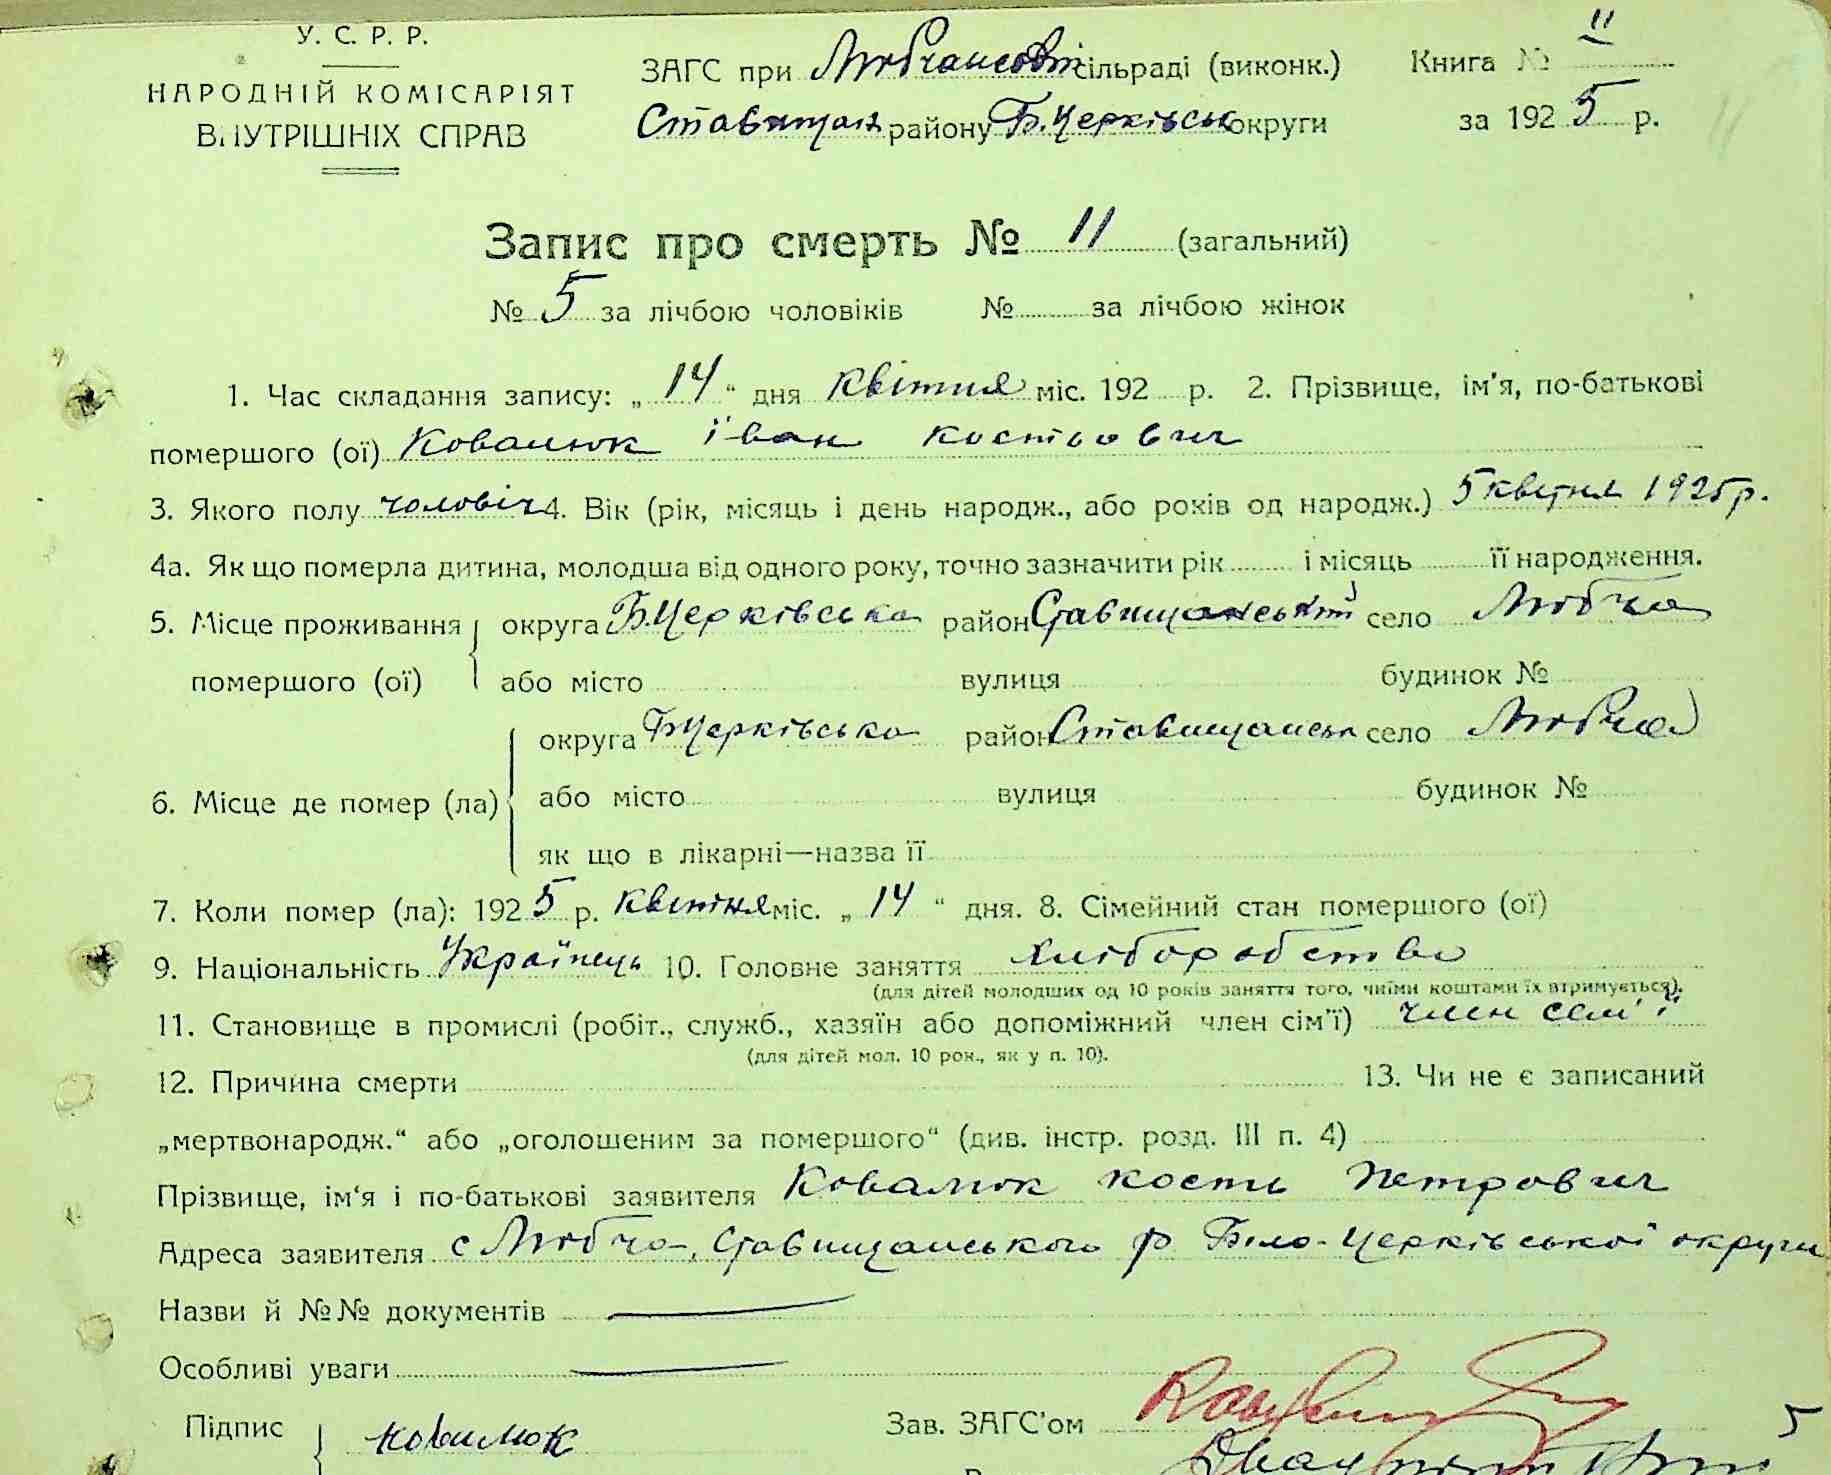 У. С. Р. Р.
НАРОДНІЙ КОМІСАРІЯТ
ВНУТРІШНІХ СПРАВ
ЗАГС при Любчансьвт сільраді (виконк.) Книга № 11
Ставищан району Б.Церківськ округи за 1925 р.
11
Запис про смерть № 11 (загальний)
№ 5 за лічбою чоловіків № за лічбою жінок
1. Час складання запису: „14“ дня квітня міс. 192 р. 2. Прізвище, ім'я, по-батькові
помершого (ої) Ковалюк їван костьович
3. Якого полу чоловіч 4. Вік (рік, місяць і день народж., або років од народж.) 5 квітня 1925 р.
4а. Як що померла дитина, молодша від одного року, точно зазначити рік і місяць її народження.
5. Місце проживання округа Б.Церківська район Ставищанський село Любча
помершого (ої) або місто вулиця будинок №
округа БЦерківська район Ставищанськ село Любча
6. Місце де помер (ла) або місто вулиця будинок №
як що в лікарні—назва її
7. Коли помер (ла): 1925 р. квітня міс. „14“ дня. 8. Сімейний стан помершого (ої)
9. Національність Українець 10. Головне заняття хліборобство
(для дітей молодших од 10 років заняття того, чиїми коштами їх втримується).
11. Становище в промислі (робіт., служб., хазяїн або допоміжний член сім'ї) член сем'ї
(для дітей мол. 10 рок., як у п. 10).
12. Причина смерти 13. Чи не є записаний
„мертвонародж.“ або „оголошеним за помершого“ (див. інстр. розд. III п. 4)
Прізвище, ім'я і по-батькові заявителя Ковалюк кость Петрович
Адреса заявителя с Любча, Ставищанського р Біло-Церківської округи
Назви й №№ документів
Особливі уваги
Підпис ковалюк Зав. ЗАГС'ом 5